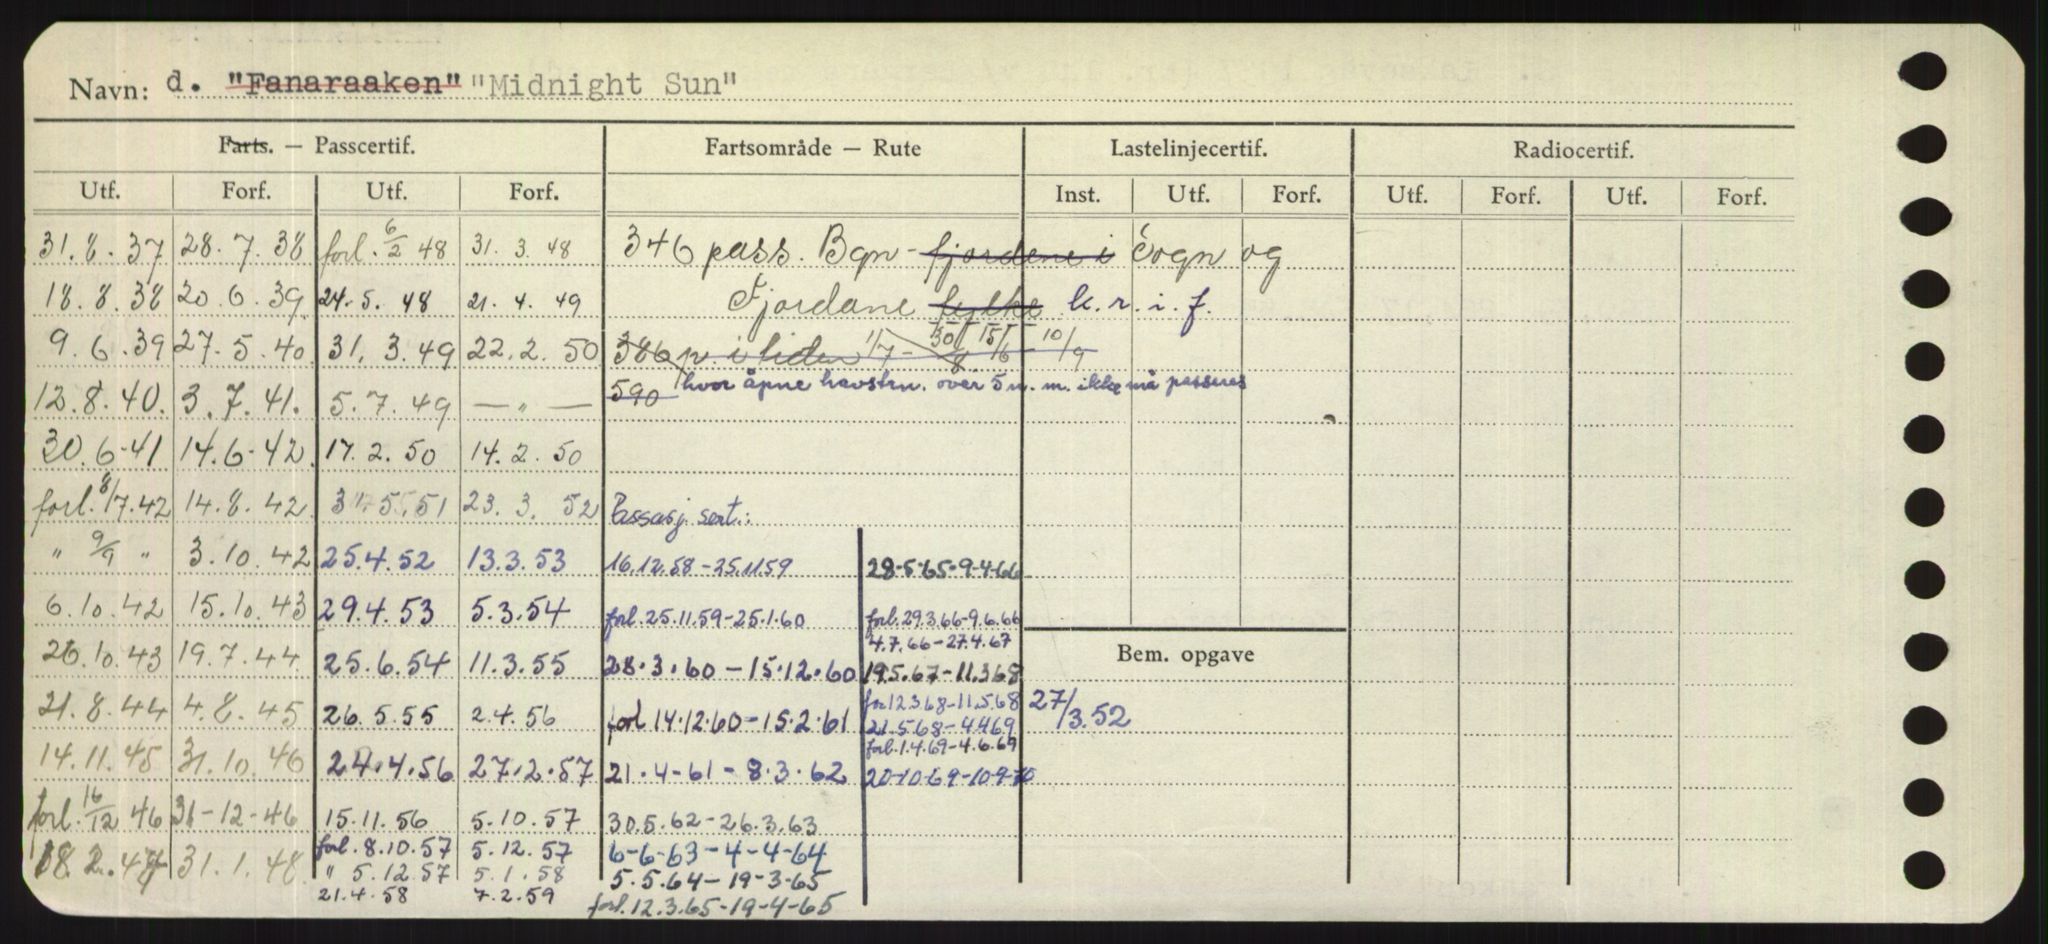 Navn: d. "Fanaraaken" "Midnight Sun"
Farts. — Passcertif. Fartsområde — Rute Lastelinjecertif. Radiocertif.
Utf. Forf. Utf. Forf. Inst. Utf. Forf. Utf. Forf. Utf. Forf.
31.8.37 28.7.38 forl. 6/2 48 31.3.48 346 pass. Bgn - fjordene i Sogn og
18.8.38 20.6.39 24.5.48 21.4.49 Fjordane fylke k.r.i.f.
9.6.39 27.5.40 31.3.49 22.2.50 386 p. i tiden 1/7 - 30/8 15/6 - 10/9
12.8.40. 3.7.41. 5.7.49 — " — 590 hvor åpne havstrn. over 5 n.m. ikke må passeres
30.6.41 14.6.42 17.2.50 14.2.50
forl. 8/7.42 14.8.42 5.51 23.3.52 Passasj. sert.:
" 9/9 " 3.10.42 25.4.52 13.3.53 16.12.58-25.11.59 28-5-65-9-4-66
6.10.42 15.10.43 29.4.53 5.3.54 forl. 25.11.59-25.1.60 forl. 29.3.66-9.6.66
4.7.66-27.4.67
26.10.43 19.7.44 25.6.54 11.3.55 28.3.60-15.12.60 19.5.67-11.3.68
Bem. opgave
21.8.44 4.8.45 26.5.55 2.4.56 forl 14.12.60-15.2.61 for 12.3.68-11.5.68 27/3.52
21.5.68-4.4.69
forl. 1.4.69-4.6.69
14.11.45 31.10.46 24.4.56 27.2.57 21.4-61-8.3.62 20-10-69-10-9-70
forl. 16/12 46 31-12-46 15.11.56 5.10.57 30.5.62-26.3.63
18.2.47 31.1.48 forl. 8.10.57 5.12.57 6-6-63-4-4-64
" 5.12.57 5.1.58 5.5.64-19-3-65
21.4.58 7.2.59 forl. 12.3.65-19-4-65